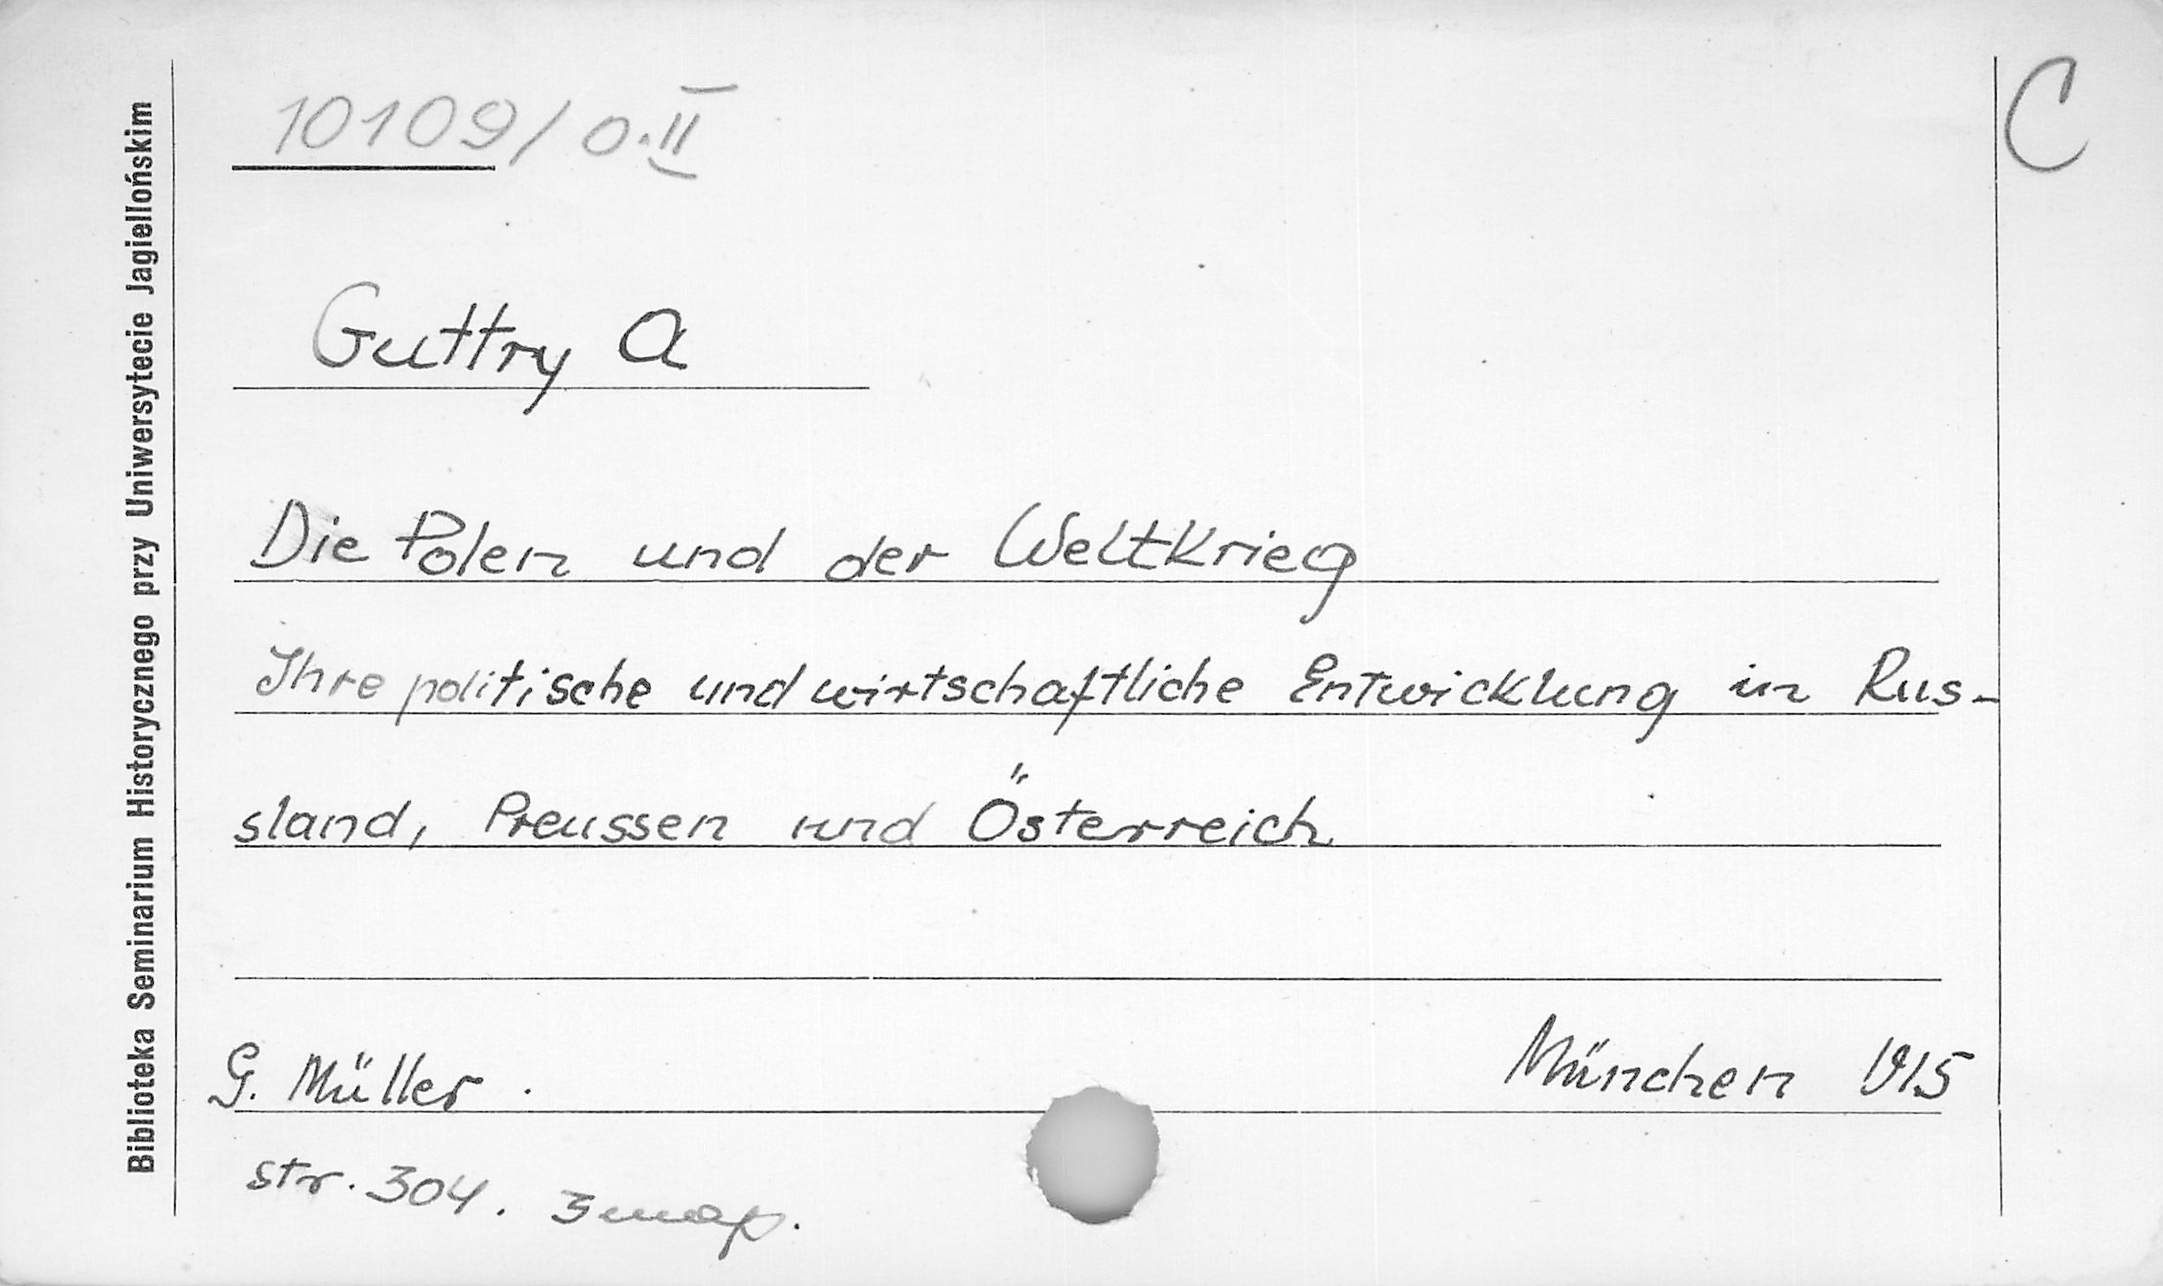 10109/O.II
C
Biblioteka Seminarium Historycznego przy Uniwersytecie Jagiellońskim
Guttry A
Die Polen und der Weltkrieg
Ihre politische und wirtschaftliche Entwicklung in Rus-
sland, Preussen und Österreich
G. Müller. München 1915
str. 304. 3 map.